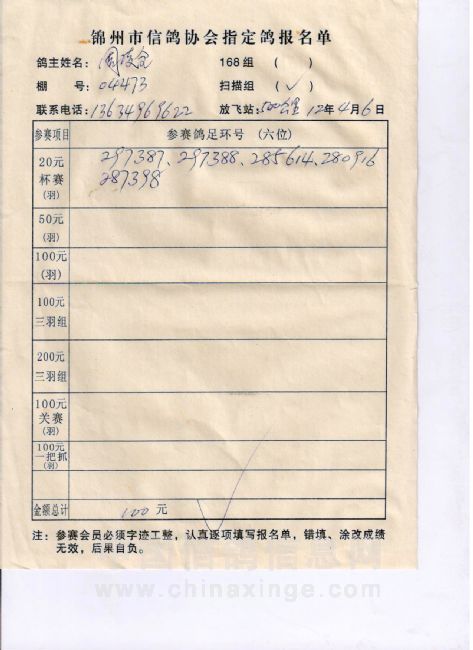 锦州市信鸽协会指定鸽报名单
鸽主姓名： 168组 （ ）
棚 号： 04473 扫描组 （✓）
联系电话：13634969622 放飞站：500公里 12年4月6日
参赛项目 参赛鸽足环号 （六位）
20元 297387、297388、285614、280916
杯赛 287398
（羽）
50元
（羽）
100元
（羽）
100元
三羽组
200元
三羽组
100元
关赛
（羽）
100元
一把抓
（羽）
金额总计 100 元
注：参赛会员必须字迹工整，认真逐项填写报名单，错填、涂改成绩
无效，后果自负。
www.chinaxinge.com